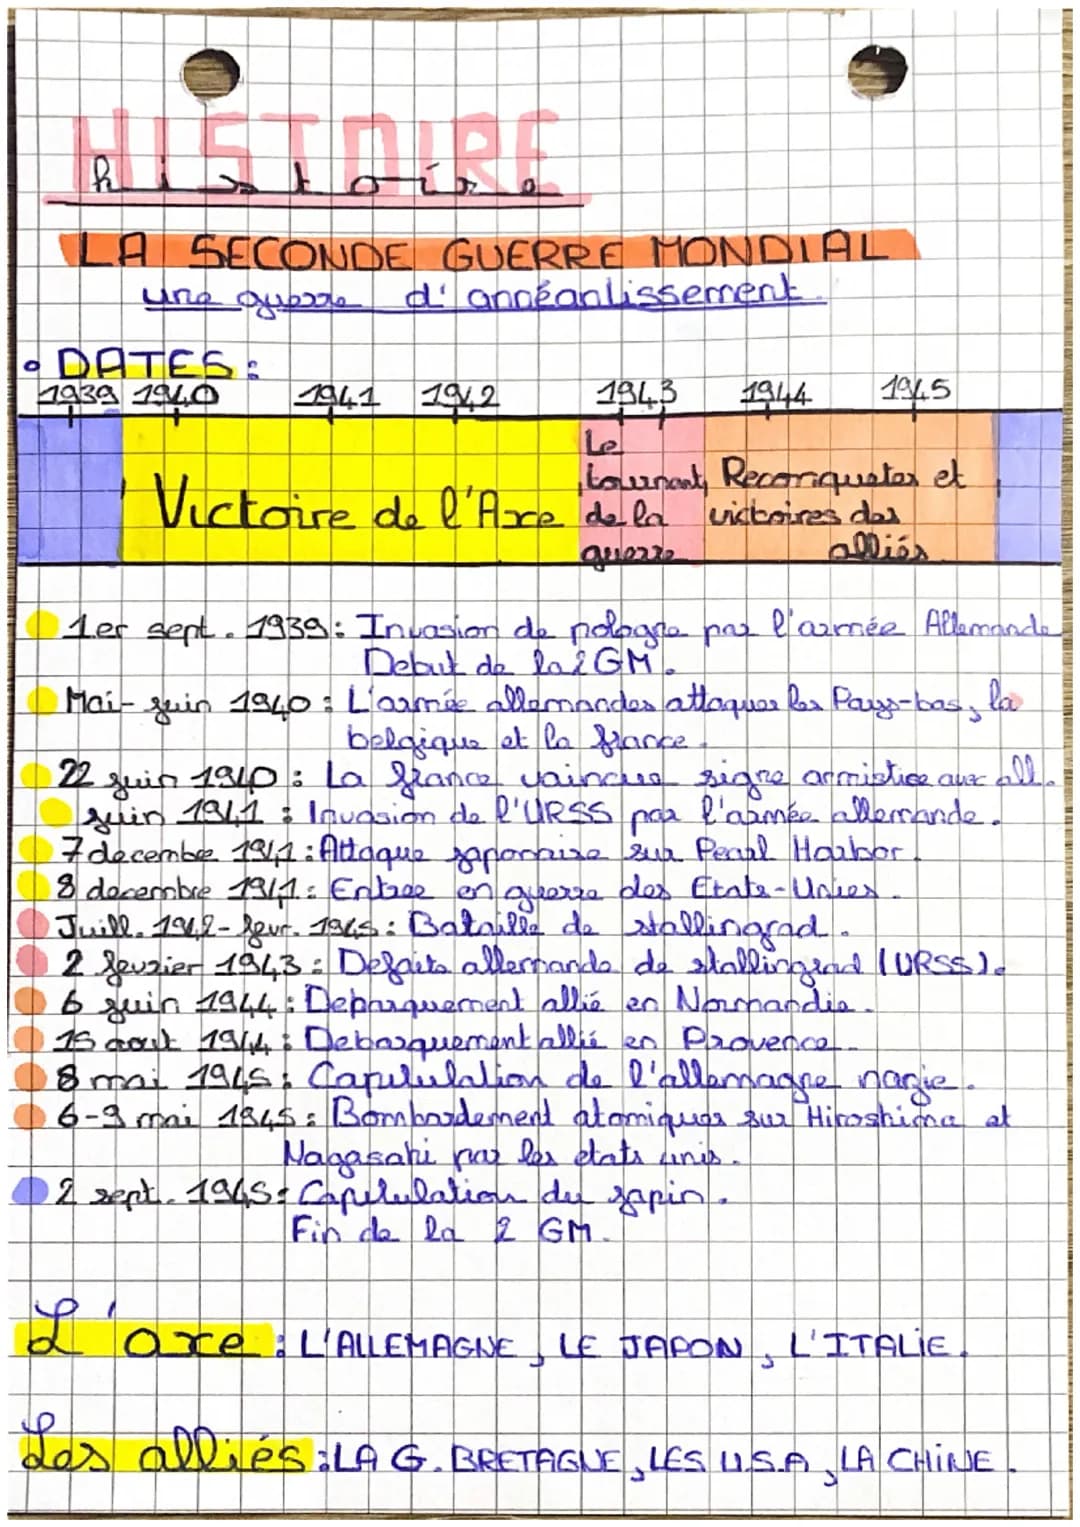 HISTOIRE
histoire
LA SECONDE GUERRE MONDIAL
une guerre d'annéantissement.
• DATES :
1939 1940 1941 1942 1943 1944 1945
Victoire de l'Axe
Le tournant de la guerre
Reconquetes et victoires des alliés
1er sept. 1939 : Invasion de pologne par l'armée Allemande
Debut de la 2 GM.
Mai-juin 1940 : L'armée allemandes attaques les Pays-bas, la
belgique et la france.
22 juin 1940 : La france vaincue signe armistice avec all.
juin 1941 : Invasion de l'URSS par l'armée allemande.
7 decembre 1941 : Attaque japonaise sur Pearl Harbor.
8 decembre 1941 : Entree en guerre des Etats-Unies.
Juill. 1942 - fevr. 1945 : Bataille de stallingrad.
2 fevrier 1943 : Defaite allemande de stallingrad (URSS).
6 juin 1944 : Debarquement allié en Normandie.
15 aout 1944 : Debarquement allié en Provence.
8 mai 1945 : Capitulation de l'allemagne nazie.
6-9 mai 1945 : Bombardement atomiques sur Hiroshima et
Nagasaki par les etats unis.
2 sept. 1945 : Capitulation du japin.
Fin de la 2 GM.
L'axe : L'ALLEMAGNE, LE JAPON, L'ITALIE.
Les alliés : LA G. BRETAGNE, LES U.S.A, LA CHINE.